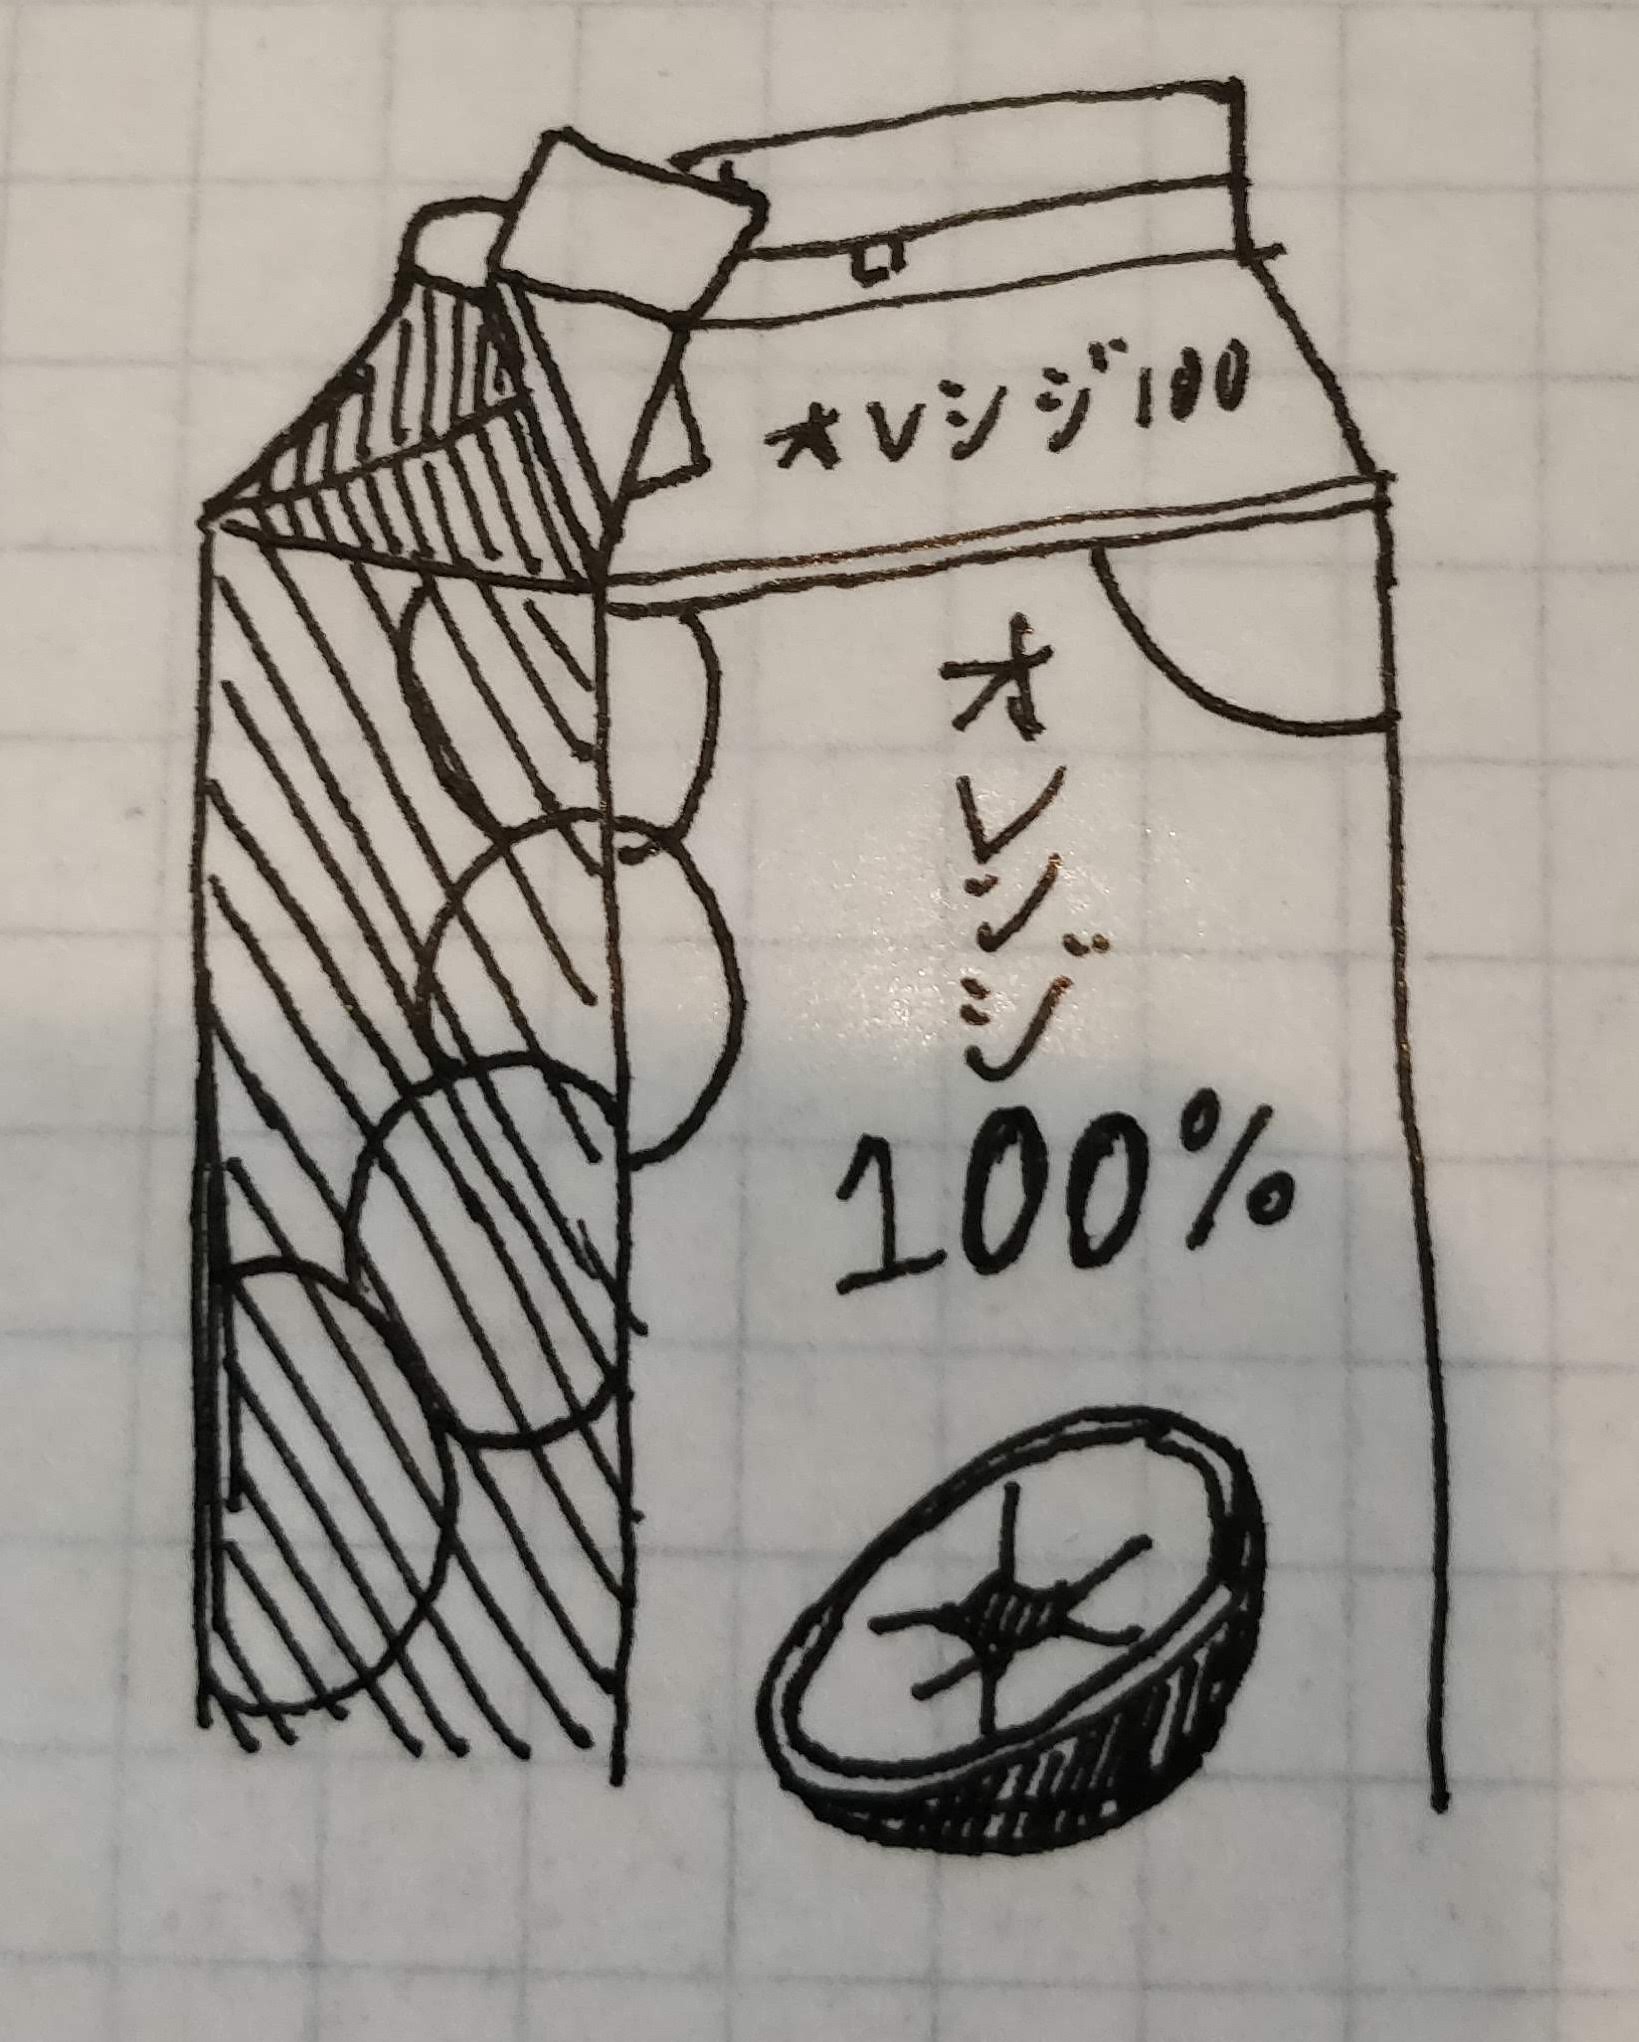 オレンジ100
オレンジ
100%